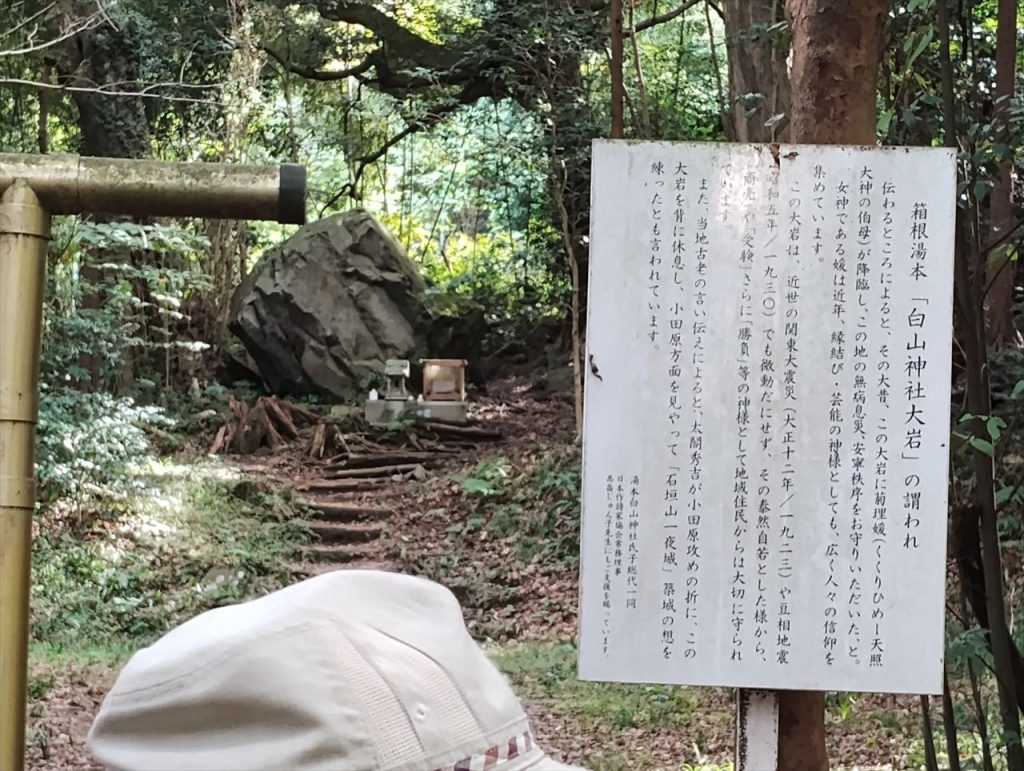 箱根湯本 「白山神社大岩」の謂われ
伝わるところによると、その大昔、この大岩に菊理媛(くくりひめー天照
大神の伯母)が降臨し、この地の無病息災、安寧秩序をお守りいただいた、と。
女神である媛は近年、縁結び・芸能の神様としても、広く人々の信仰を
集めています。
この大岩は、近世の関東大震災(大正十二年/一九二三)や豆相地震
(昭和五年/一九三〇)でも微動だにせず、その泰然自若とした様から、
「商売」や「受験」さらに「勝負」等の神様として地域住民からは大切に守られ
ています。
また、当地古老の言い伝えによると、太閤秀吉が小田原攻めの折に、この
大岩を背に休息し、小田原方面を見やって「石垣山一夜城」築城の想を
練ったとも言われています。
湯本白山神社氏子総代一同
日本作詩家協会常務理事
髙畠じゅん子先生にもご支援を賜っています。